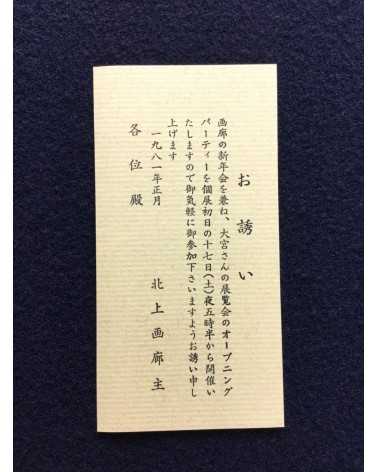 お誘い
画廊の新年会を兼ね、大宮さんの展覧会のオープニング
パーティーを個展初日の十七日(土)夜五時半から開催い
たしますので御気軽に御参加下さいますようお誘い申し
上げます
一九八一年正月
北上画廊主
各位殿